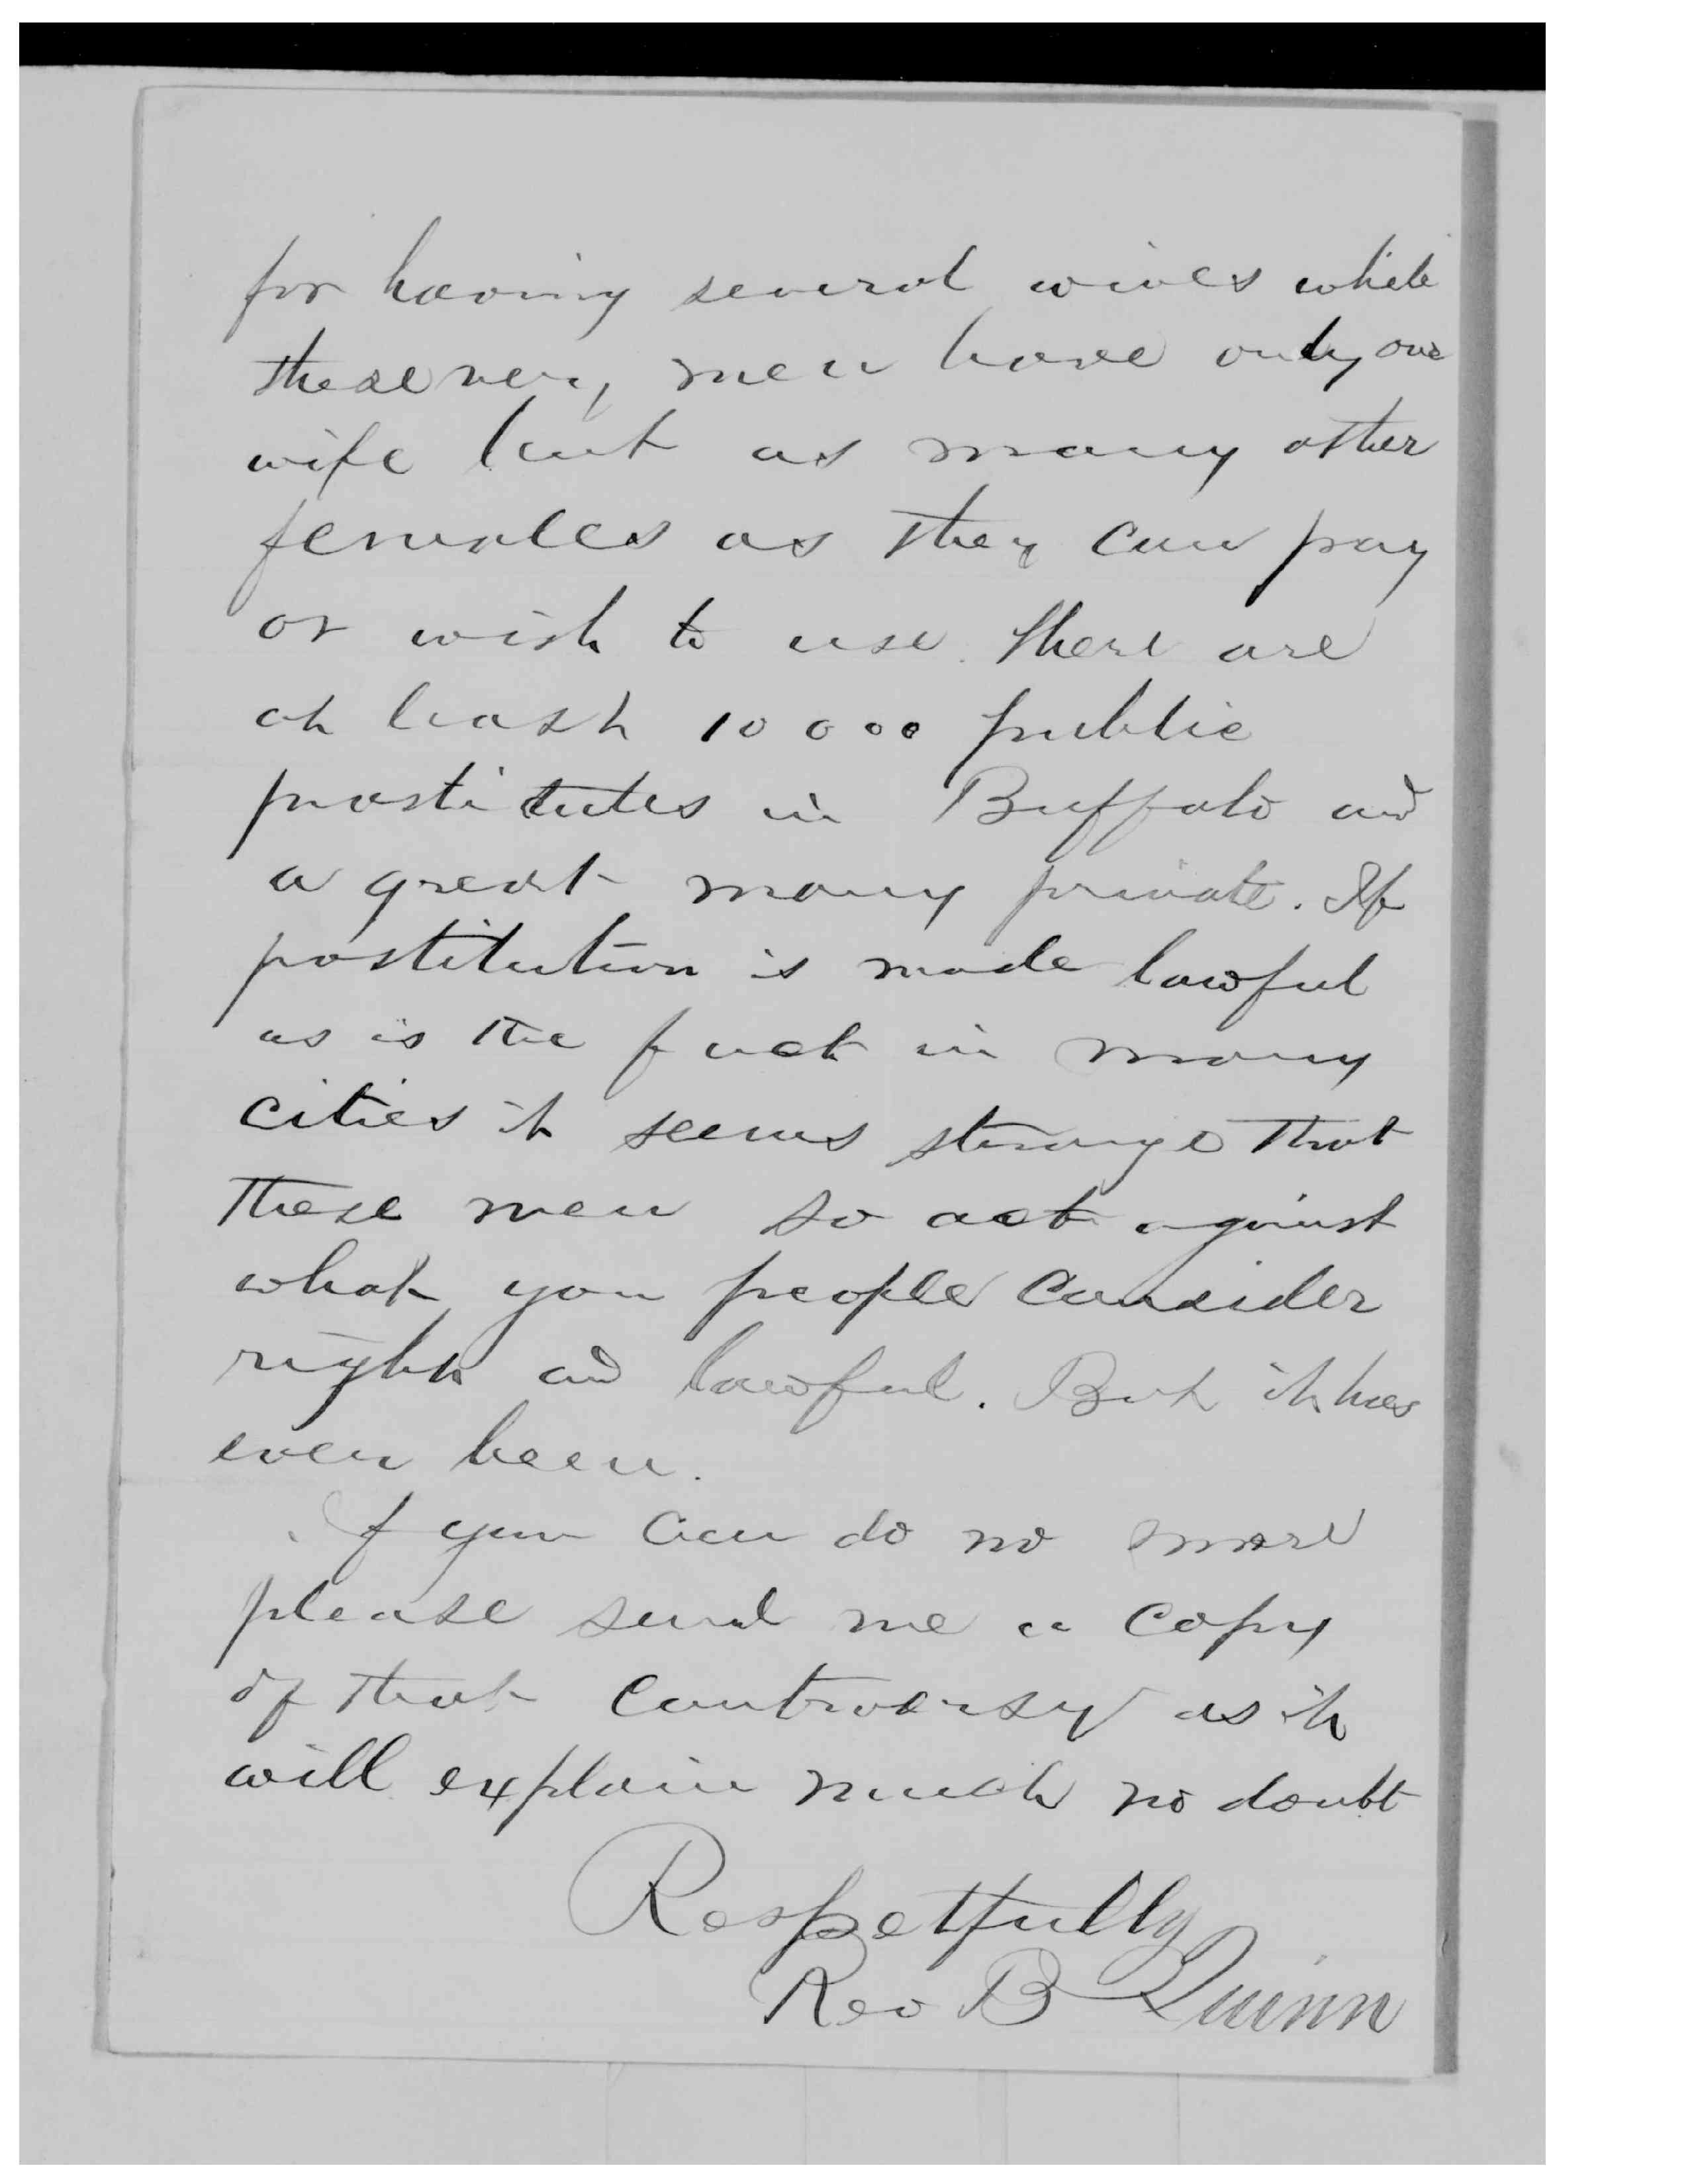 for having several wives while
these very men have only one
wife but as many other
females as they can pay
or wish to use. There are
at least 10000 public
prostitutes in Buffalo and
a great many private. If
postitution is made lawful
as is the fact in many
cities it seems strange that
these men so act against
what you people consider
right and lawful. But it has
ever been.
If you can do no more
please send me a copy
of that controversy as it
will explain much no doubt
Respetfully
Rev B Quinn